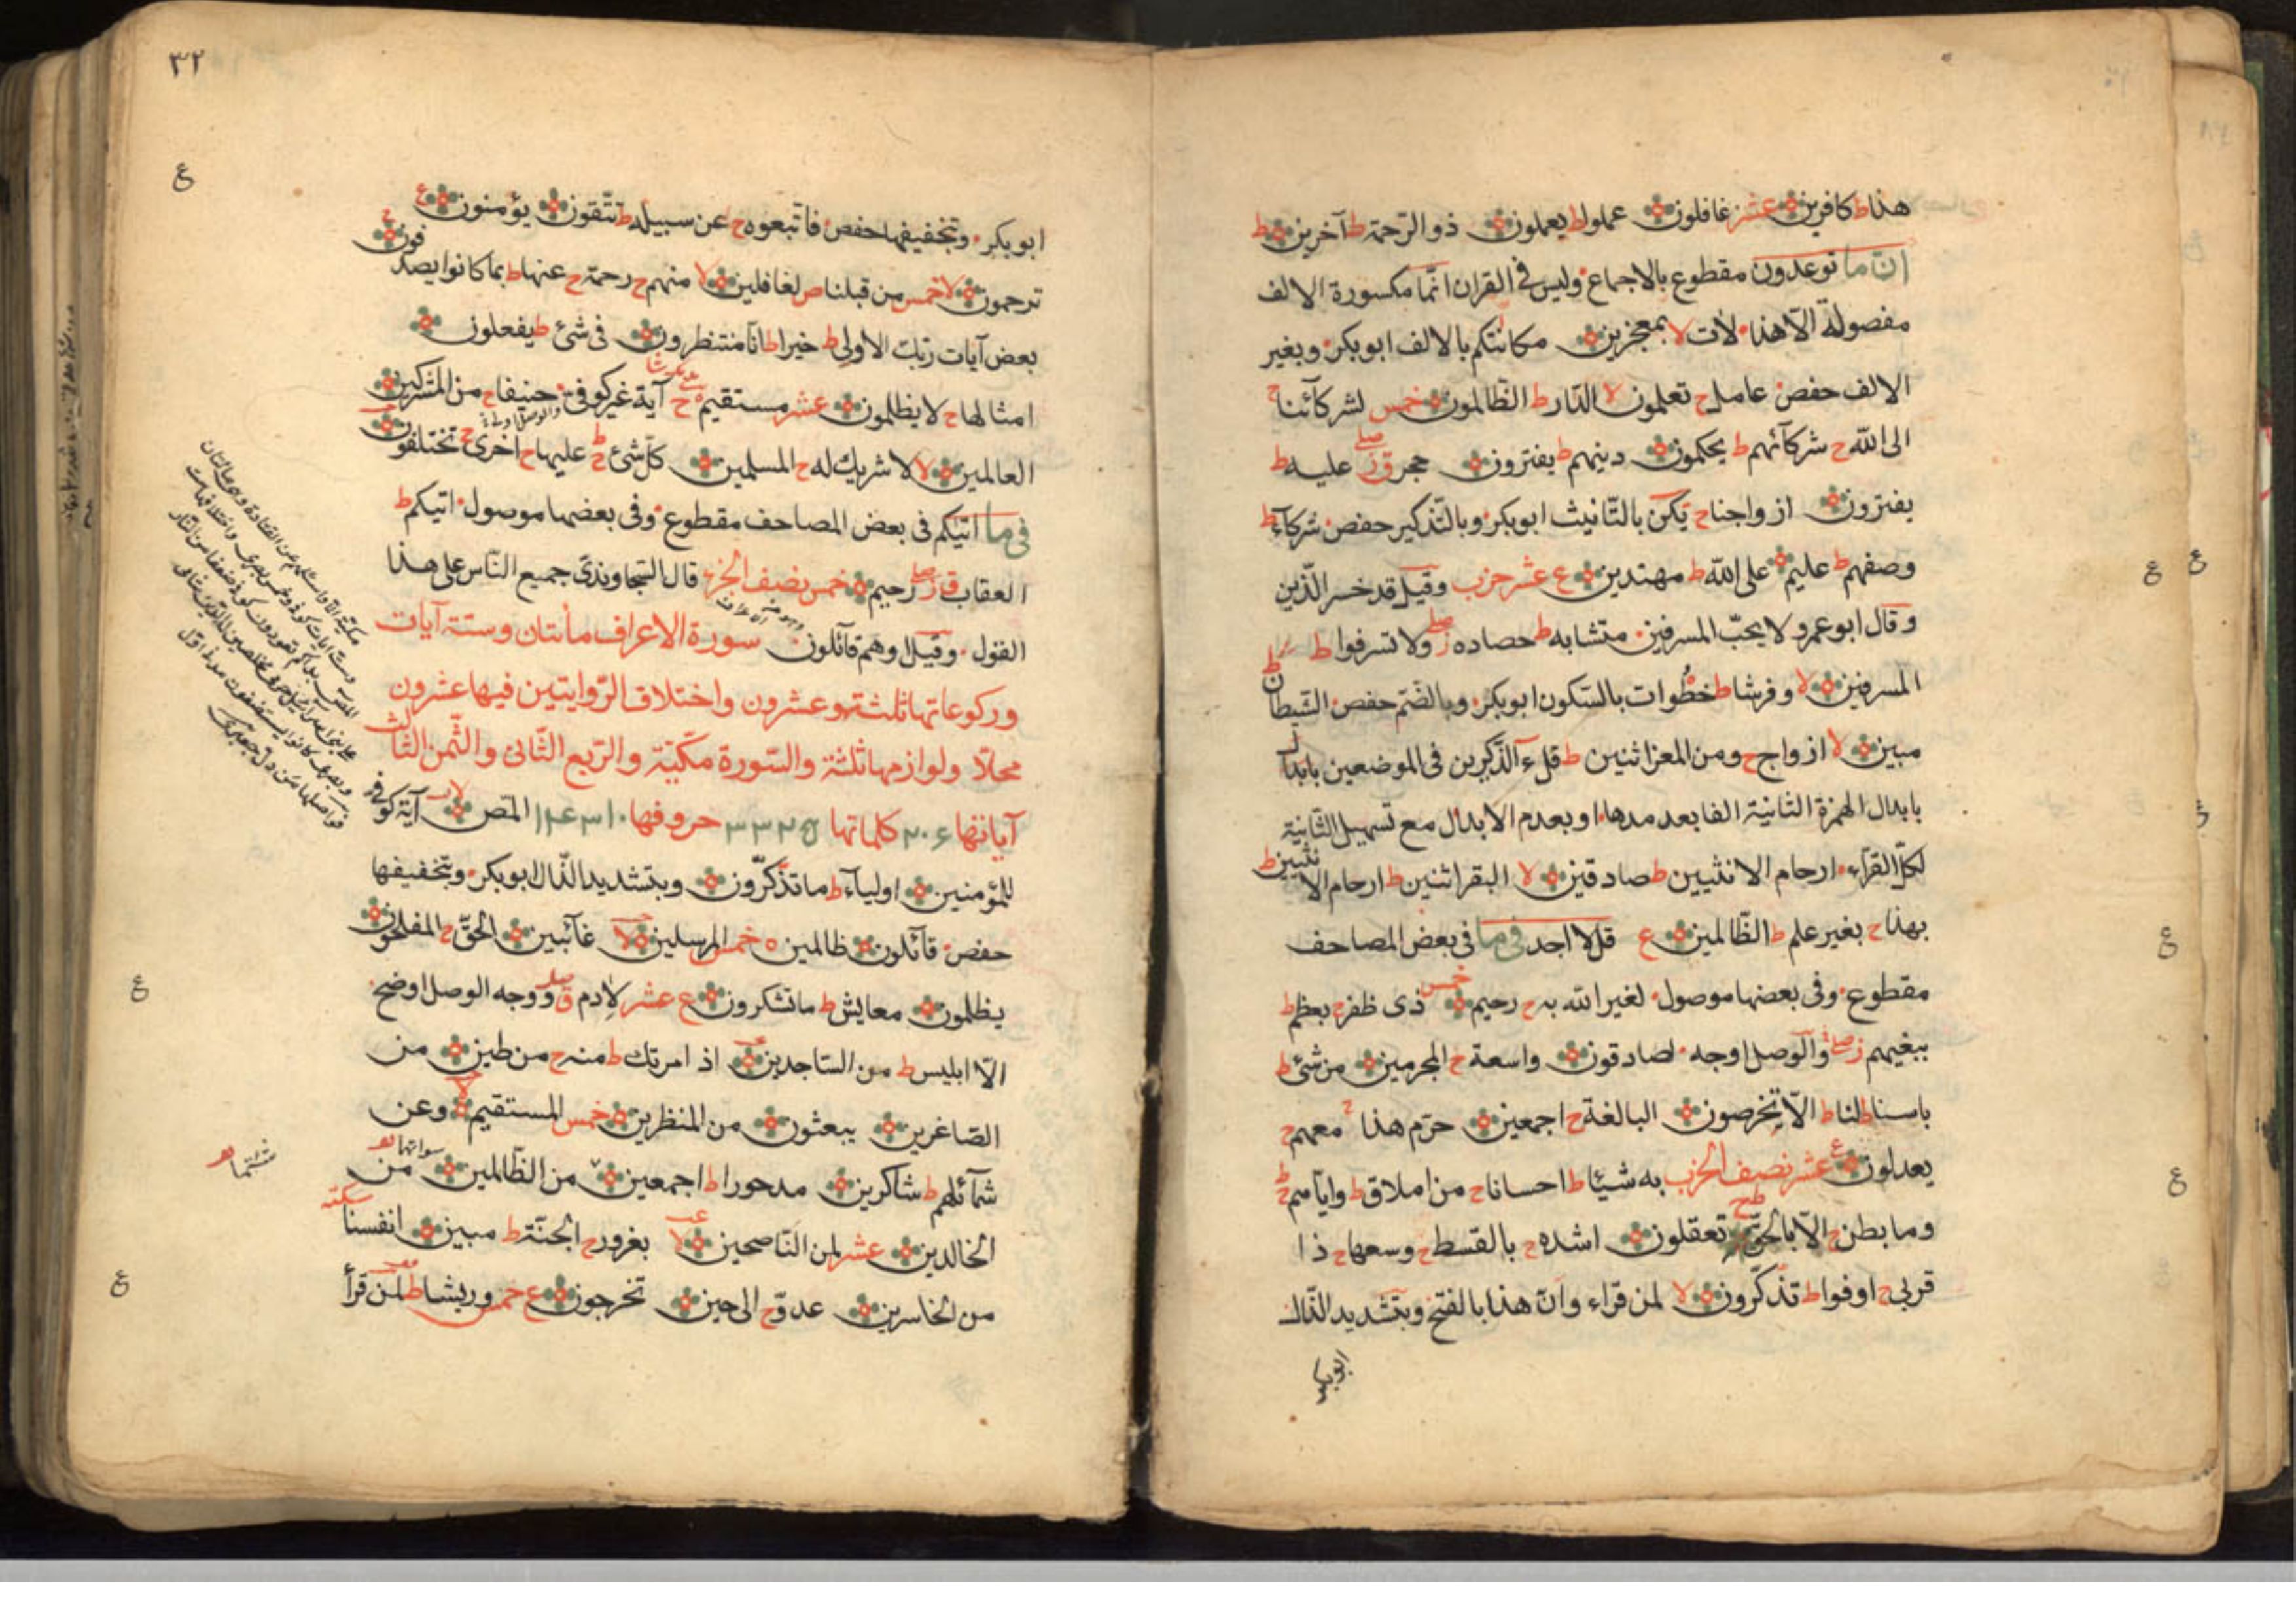 هذا ط كافرين عشر غافلون عملوا ط يعملون ذو الرّحمة ط آخرين ط
انّ ما توعدون مقطوع بالاجماع وليس فى القران انّما مكسورة الالف
مفصولة الّا هذا لأت لا بمعجزين مكانتكم بالالف ابوبكر وبغير
الالف حفص عامل ح تعلمون لا الدّار ط الظّالمون خمس لشركآئنا ح
الى الله ح شركآئهم ط يحكمون دينهم ط يفترون حجر ق ز صلے عليه ط
يفترون ازواجنا ح تكن بالتّانيث ابوبكر وبالتّذكير حفص شركآء ط
وصفهم ط عليم على الله ط مهتدين ع عشر حزب وقيل قد خسر الّذين
وقال ابوعمرو لا يحبّ المسرفين متشابه ط حصاده ز صلے ولا تسرفوا ط
المسرفين لا وفرشا ط خطُوات بالسّكون ابوبكر وبالضّم حفص الشّيطان ط
مبين لا ازواج ح ومن المعز اثنين ط قل ءآلذّكرين فى الموضعين بابدال
بابدال الهمزة الثانية الفا بعد مدها او بعدم الابدال مع تسهيل الثّانية
لكلّ القرّآء ارحام الانثيين ط صادقين لا البقر اثنين ط ارحام الانثيين ط
بهذا ح بغير علم ط الظّالمين ع قل لا اجد فى ما فى بعض المصاحف
مقطوع وفى بعضها موصول لغير الله به ح رحيم خمس ذى ظفر ح بعظم ط
ببغيهم ز صلے والوصل اوجه لصادقون واسعة ح المجرمين من شئ ط
باسنا ط لنا ط الّا تخرصون البالغة ح اجمعين حرّم هذا ح معهم ح
يعدلون ع عشر نصف الحزب به شيئا ط احسانا ح من املاق ط وايّاهم ط ح
وما بطن ح الّا بالحقّ ط ح تعقلون اشده ح بالقسط ح وسعها ح ذا
قربى ح اوفوا ط تذكّرون لا لمن قراء وانّ هذا بالفتح وبتشديد الذّال
ابوبكر
٣٢
ع
ابوبكر وتخفيفها حفص فاتّبعوه ح عن سبيله ط تتّقون يؤمنون ع
ترحمون لا خمس من قبلنا ص لغافلين لا منهم ح رحمة ح عنها ط بما كانوا يصدفون ح
بعض آيات ربّك الاولى ط خيرا ط انّا منتظرون فى شئ ط يفعلون
امثالها ح لا يظلمون عشر مستقيم ح آية غير كوفى حنيفا ح من المشركين
العالمين لا لا شريك له ح المسلمين كلّ شئ ط ح عليها ح اخرى ح تختلفون
فى ما آتيكم فى بعض المصاحف مقطوع وفى بعضها موصول اتيكم ط
العقاب ق ز صلے رحيم خمس نصف الجزء قال السّجاوندى جميع النّاس على هذا
القول وقيل او هم قآئلون سورة الاعراف مأئتان وستّة آيات
وركوعاتها ثلثة وعشرون واختلاف الرّوايتين فيها عشرون
محلّا ولوازمها ثلثة والسّورة مكّيّة والرّبع الثّانى والثّمن الثّالث
آياتها ٢٠٦ كلماتها ٣٣٢٥ حروفها ١٤٣١٠ المّص لا آية كوفى
للمؤمنين اوليآء ط ما تذّكّرون وبتشديد الذّال ابوبكر وبتخفيفها
حفص قآئلون ظالمين خمس المرسلين لا غآئبين الحقّ ح المفلحون
يظلمون معايش ط ما تشكرون ع عشر لادم ق صلے ووجه الوصل اوضح
الّا ابليس ط من السّاجدين اذ امرتك ط منه ح من طين من
الصّاغرين يبعثون من المنظرين خمس المستقيم لا وعن
شمآئلهم ط شاكرين مدحورا ط اجمعين من الظّالمين من سواتهما
الخالدين عشر لمن النّاصحين لا بغرور ح الجنّة ط مبين انفسنا سكته
من الخاسرين عدوّ ح الى حين تخرجون ع خمس وريشا ط لمن قرأ